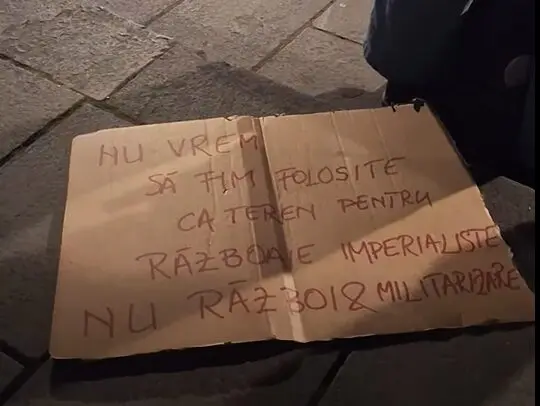 NU VREM
SĂ FIM FOLOSITE
CA TEREN PENTRU
RĂZBOAIE IMPERIALISTE
NU RĂZBOI & MILITARIZARE